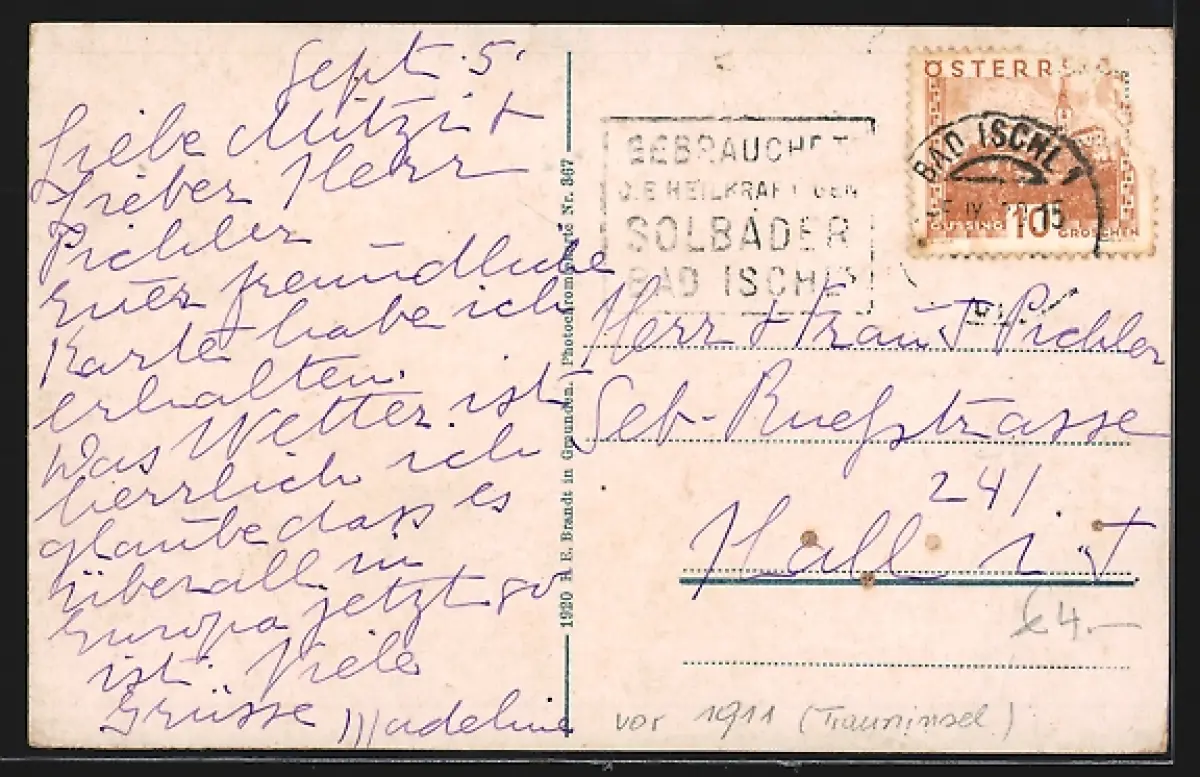 Sept. 5.
Liebe Mitzi +
Lieber Herr
Pichler
Euer freundliche
Karte habe ich
erhalten.
Was Wetter ist
herrlich ich
glaube dass es
überall in
Europa jetzt so
ist. Viele
Grüsse Madeline
1920 R. E. Brandt in Gmunden. Photochromiekarte Nr. 367
GEBRAUCHET
DIE HEILKRAFT DER
SOLBÄDER
BAD ISCHL
ÖSTERR
BAD ISCHL 1
IX 15
GÜSSING 10 GROSCHEN
Herr + Frau Pichler
Seb- Ruefstrasse
241
Hall i. T
€4.—
vor 1911 (Trauninsel)